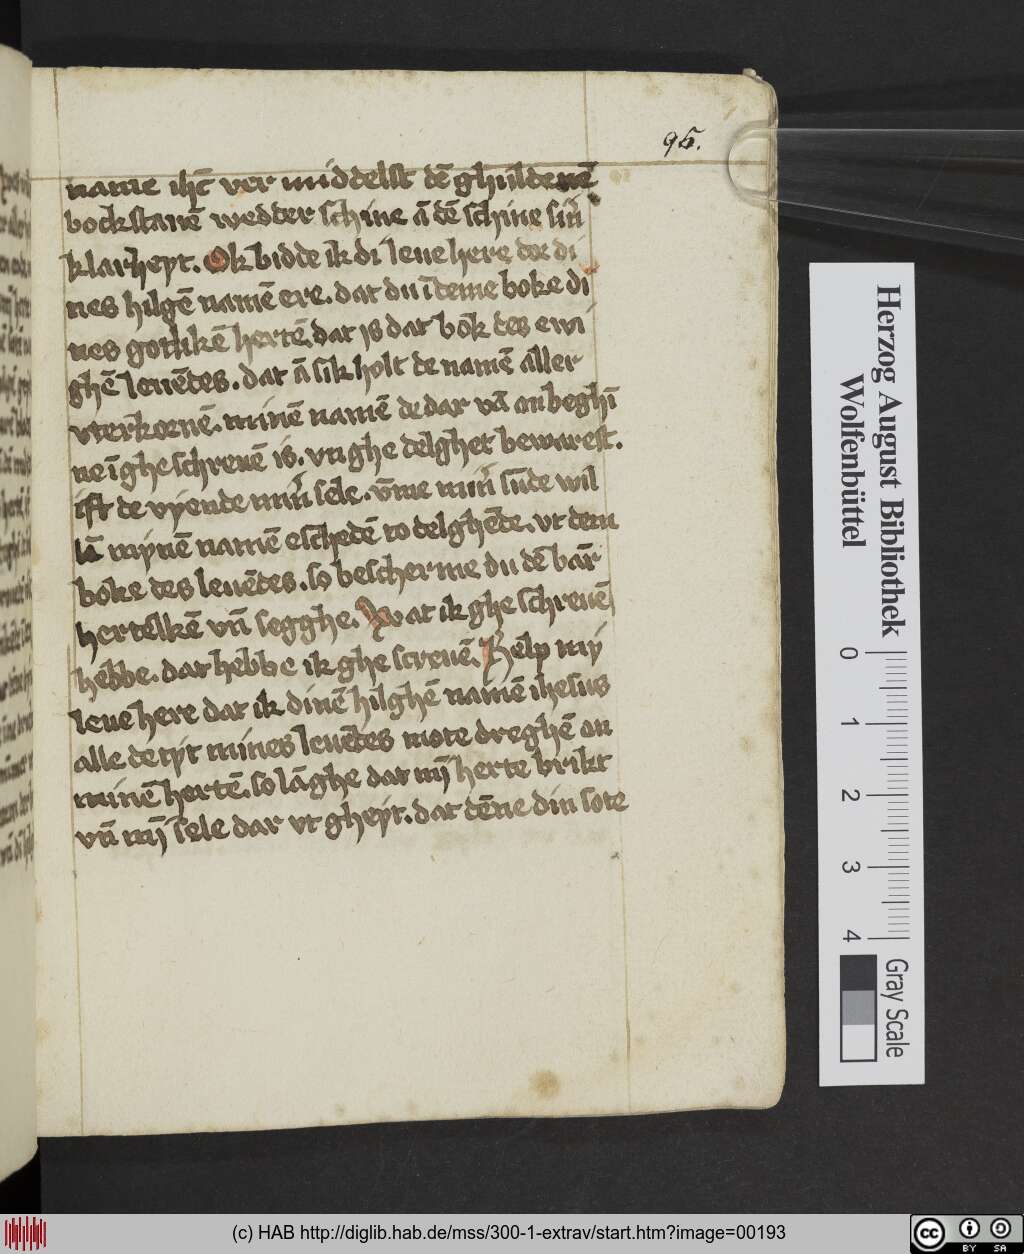 95.
name ihc̄ ver middelst dē ghuldenē
bockstauē wedder schine ā dē schine sin̄
klarheyt. Ok bidde ik di leue here dor di
nes hilgē namē ere. dat du ī deme boke di
nes gotlikē hertē. dat is dat bok des ewi
ghē leuēdes. dat ā sik holt de namē aller
vterkornē. minē namē de dar vā anbeghī
ne ī ghe schreuē is. vn ghe delghet bewarest.
ift de vyende min̄ sele. vm̄e min̄ sūde wil
lā mynē namē eschedē to delghēde. vt dem
boke des leuēdes. so bescherme du dē bar̄
hertelkē vn̄ segghe. Wat ik ghe schreuē
hebbe. dat hebbe ik ghe screuē. Help my
leue here dat ik dinē hilghē namē ihesus
alle de tyt mines leuēdes mote dreghē an
minē hertē. so lāghe dat mȳ herte brikt
vn̄ mȳ sele dar vt gheyt. dat dēne din sote
Herzog August Bibliothek
Wolfenbüttel
0 1 2 3 4
Gray Scale
(c) HAB http://diglib.hab.de/mss/300-1-extrav/start.htm?image=00193
cc BY SA